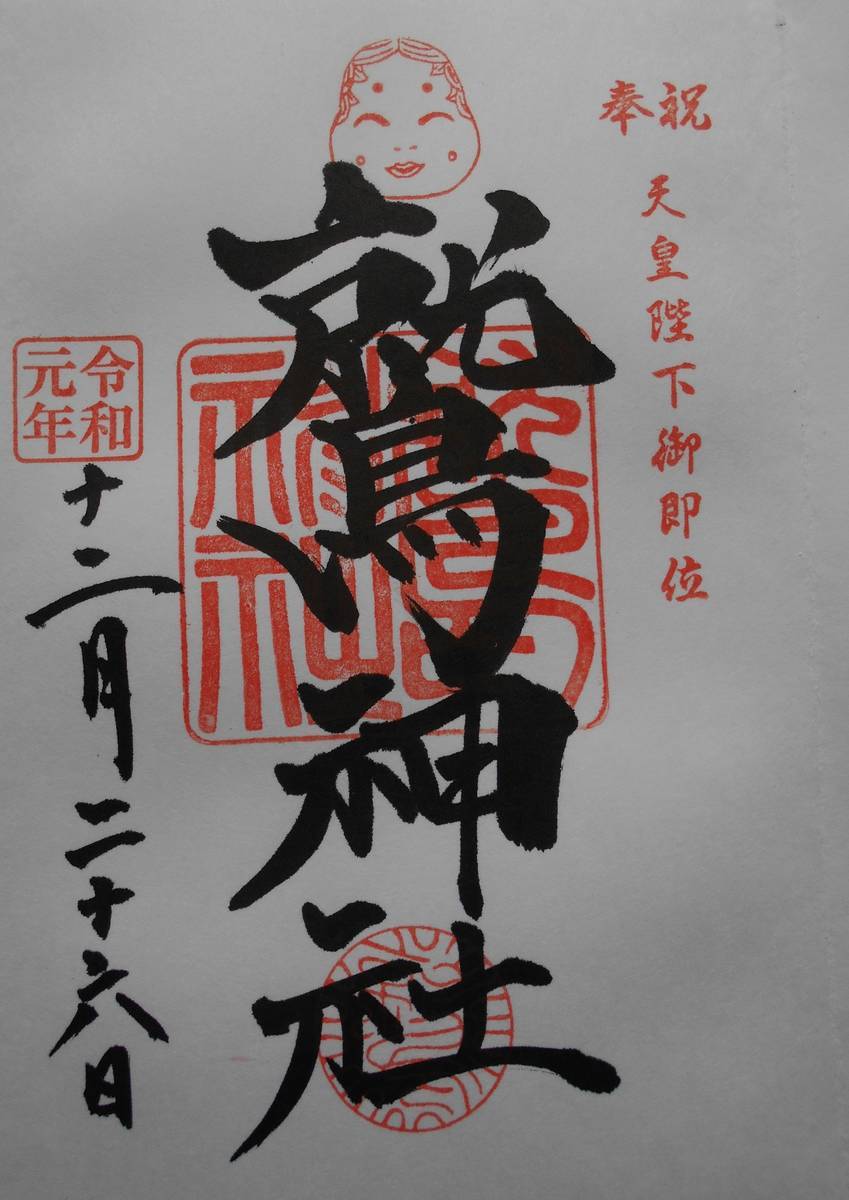 奉祝
天皇陛下御即位
鷲神社
令和元年
十二月二十六日